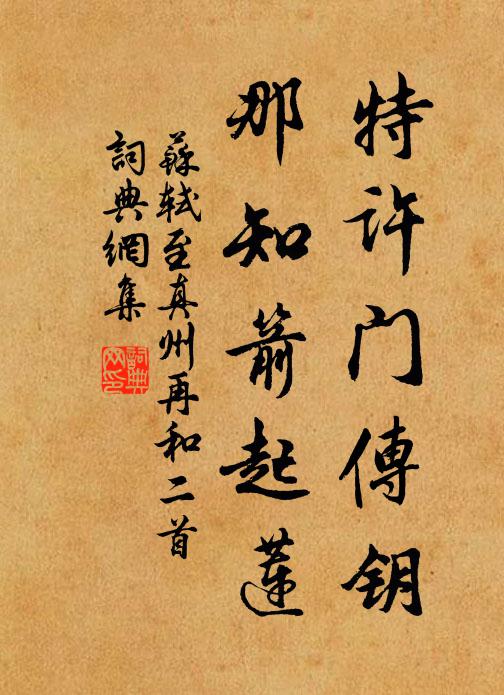 特许门傳钥
那知箭起蓮
蘇轼至真州再和二首
詞典網集
詞典网印